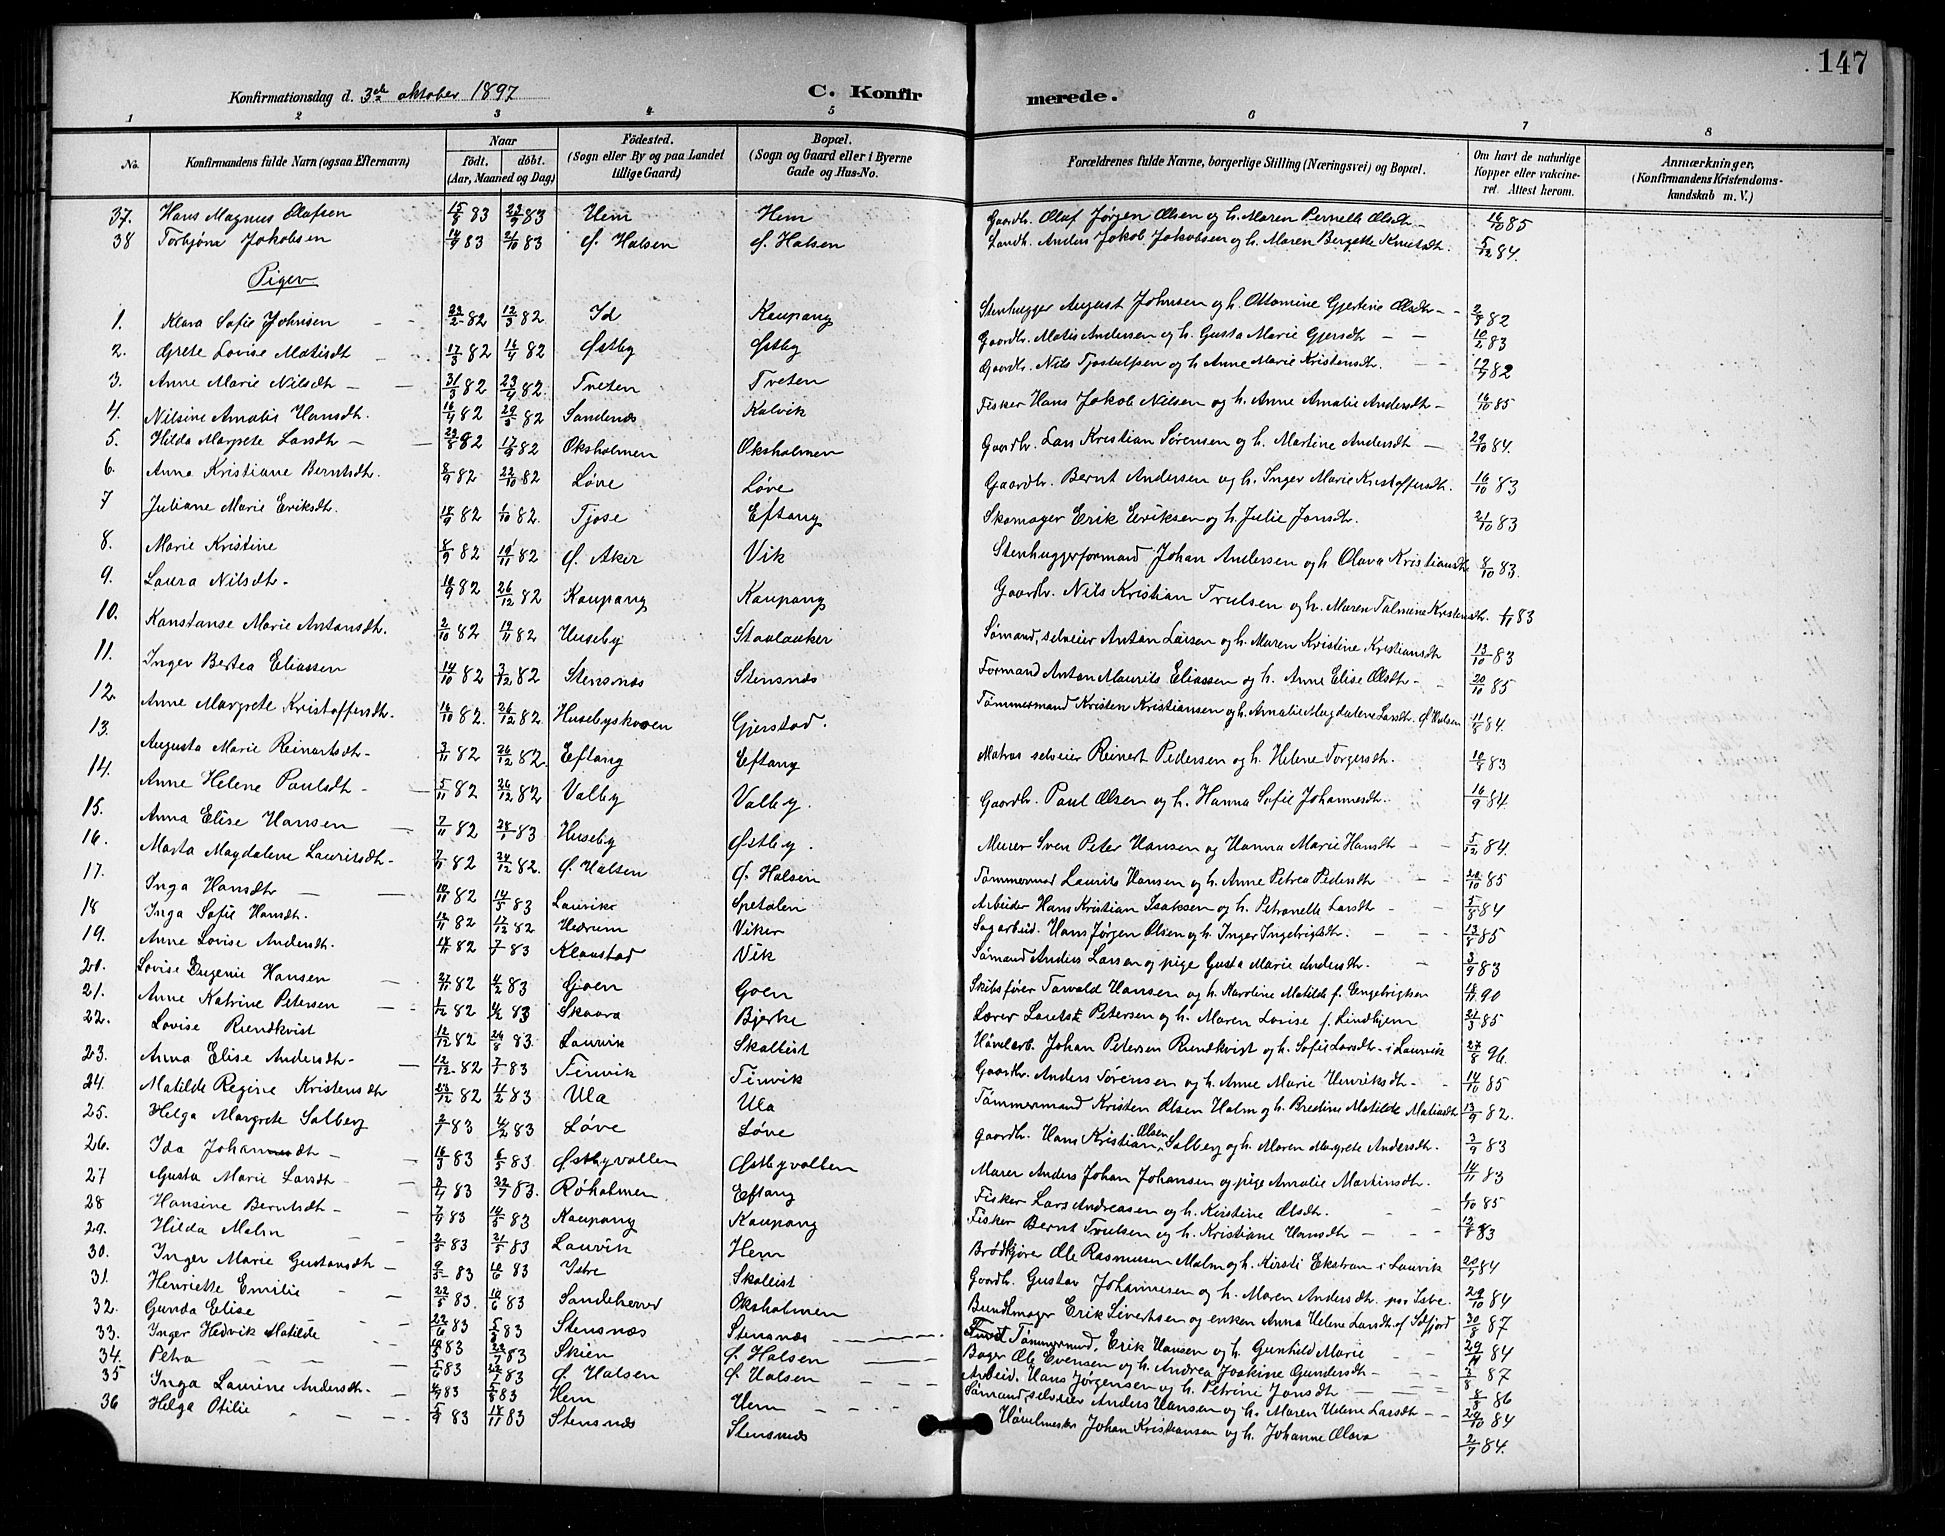 147
Konfirmationsdag d. 3die oktober 1897 C. Konfirmerede.
1 2 3 4 5 6 7 8
No. Konfirmandens fulde Navn (ogsaa Efternavn) Naar födt. döbt. (Aar, Maaned og Dag) Födested. (Sogn eller By og paa Landet tillige Gaard) Bopæl. (Sogn og Gaard eller i Byerne Gade og Hus-No. Forældrenes fulde Navne, borgerlige Stilling (Næringsvei) og Bopæl. Om havt de naturlige Kopper eller vakcineret. Attest herom. Anmærkninger. (Konfirmandens Kristendomskundskab m. V.)
37. Hans Magnus Olafsen 15/8 83 23/9 83 Hem Hem Gaardbr. Olaf Jørgen Olsen og h. Maren Pernelle Olsdtr. 16/10 85
38 Torbjørn Jakobsen 14/9 83 21/10 83 Ø. Halsen Ø. Halsen Landh. Anders Jakob Jakobsen og h. Maren Bergette Knutsdtr. 5/12 84.
Piger
1. Klara Sofie Johnsen 82 12/3 82 Id Kaupang Stenhugger August Johnsen og h. Ottomine Gjertine Olsdtr 2/8 82
2. Grete Lovise Matisdtr 17/3 82 16/4 82 Østby Østby Gaardbr. Matis Andersen og h. Gusta Marie Gjersdtr 83
3. Anne Marie Nilsdtr 31/3 82 23/4 82. Tveten Tveten Gaardbr. Nils Tjostulfsen og h. Anne Marie Kristensdtr. 12/9 82
4. Nilsine Amalie Hansdtr. 16/4 82 29/5 82 Sandenæs Kalvik Fisker Hans Jakob Nilsen og h. Anne Amalie Andersdtr 16/10 85
5. Hilda Margrete Larsdtr 82 17/9 82 Oksholmen Oksholmen Gaardbr. Lars Kristian Sørensen og h. Martine Andersdtr 29/10 84.
6. Anna Kristiane Berntsdtr. 8/9 82 22/10 82 Løve Løve Gaardbr. Bernt Andersen og h. Inger Marie Kristoffersdtr. 16/10 83
7 Juliane Marie Eriksdtr. 18/9 82 1/10 82. Tjose Eftang Skomager Erik Eriksen og h. Julie Jonsdtr. 21/10 83
8. Marie Kristine 8/9 82 19/11 82 Ø. Aker Vik Stenhuggerformand Johan Andersen og h. Olava Kristiansdtr 8/10 83.
9. Laura Nilsdtr 18/9 82 26/12 82 Kaupang Kaupang Gaardbr. Nils Kristian Trulsen og h. Maren Talmine Kristensdtr. 83
10. Konstanse Marie Antonsdtr. 2/10 82 19/11 82 Huseby Stavlauker Sømand, selveier Anton Larsen og h. Maren Kristine Kristiansdtr 13/10 83
11. Inger Bertea Eliassen 14/10 82 3/12 82 Stensnæs Stensnæs Formand Anton Maurits Eliassen og h. Anne Elise Olsdtr 20/10 85
12. Anne Margrete Kristoffersdtr. 16/10 82. 26/12 82 Husebyskoven Gjerstad. Tømmermand Kristen Kristiansen og h. Amalie Magdalene Larsdtr. Ø. Halsen 11/8 84.
13. Augusta Marie Reinartsdtr 3/11 82 26/12 82. Eftang Eftang Matros selveier Reinert Pedersen og h. Helene Torgersdtr. 83
14. Anne Helene Paulsdtr 5/11 82 26/12 82 Valby Valby. Gaardbr. Paul Olsen og h. Hanna Sofie Johannesdtr. 16/9 84
15. Anna Elise Hansen 7/11 82 28/1 83 Huseby Østby. Murer Sven Peter Hansen og Hanna Marie Hansdtr 5/12 84.
16. Marta Magdalene Lauritsdtr 7/11 82 24/12 82. Ø. Halsen Ø. Halsen Tømmermand Laurits Hansen og h. Anne Petrea Pedersdtr 20/10 85
17. Inga Hansdtr 10/11 82 14/5 83 Laurvik Spetalen Arbeider Hans Kristian Isaksen og h. Petronelle Larsdtr 5/8 84
18 Inga Sofie Hansdtr. 12/11 82 17/12 82 Hedrum Viker Sagarbeid. Hans Jørgen Olsen og h. Inger Ingebrigtsdtr. 13/8 85
19. Anne Lovise Andersdtr. 18/11 82 7/1 83 Klaastad Vik Sømand Anders Larsen og pige Gusta Marie Andersdtr. 3/9 83
20. Lovise Eugenie Hansen 82 11/2 83 Goen Goen Skibsfører Torvald Hansen og h. Karoline Matilde f. Engebrigtsen 18/11 90
21. Anne Katrine Petersen 1/12 82 4/2 83 Skaara Bjerke Lærer Lauritz Petersen og h. Maren Lovise f. Lindhjem 21/3 85
22. Lovise Rundkvist 12/12 82 26/8 83. Laurvik Skalleist Høvlearb. Johan Petersen Rundkvist og h. Sofie Larsdtr. i Laurvik 27/8 96.
23. Anna Elise Andersdtr 12/12 82 7/1 83 Tinvik Tinvik Gaardbr. Anders Sørensen og h. Anne Marie Henriksdtr 14/10 85
24. Matilde Regine Kristensdtr 23/12 82 11/2 83 Ula Ula Tømmermand Kristen Olsen Holm og h. Bredine Matilde Matisdtr 13/9 82.
25. Helga Margrete Solberg 2/1 83 4/2 83 Løve Løve Gaardbr. Hans Kristian Olsen Solberg og h. Maren Margrete Andersdtr. 3/9 83
26. Ida Johannesdtr 16/3 83 6/5 83. Østbyvollen Østbyvollen Murer Anders Johan Johansen og pige Amalie Martinsdtr. 14/11 83
27 Gusta Marie Larsdtr 2/4 83 22/7 83. Røholmen Eftang Fisker Lars Andreasen og h. Kirstine Olsdtr. 85
28 Hansine Berntsdtr 7/4 83 14/5 83 Kaupang Kaupang Fisker Bernt Trulsen og h. Kristiane Hansdtr 12/8 83
29. Hilda Malm 2/5 83 21/5 83 Laurvik Hem Brødkjører Ole Rasmussen Malm og h. Kirsti Ekstrøm i Laurvik 84
30. Inger Marie Gustavsdtr 9/5 83 10/6 83 Istre Skalleist Gaardbr. Gustav Johannesen og h. Maren Andersdtr. paa Istre. 29/10 84
31. Henriette Emilie 22/5 83. 10/6 83 Sandeherred Oksholmen Bundtmager Erik Sivertsen og enken Anna Helene Larsdtr. af Idfjord 30/8 87
32. Gunda Elise 22/6 83 5/8 83 Stensnæs Stensnæs Tømmermand, Erik Hansen og h. Gunhild Marie 29/11 84
33. Inger Hedvik Matilde 83 22/7 83 Skien Ø. Halsen Bager Ole Evensen og h. Andrea Joakine Gundersdtr 5/8 87
34. Petra 5/6 83 22/7 83 Ø. Halsen Ø. Halsen Arbeid. Hans Jørgensen og h. Petrine Jonsdtr 8/8 86
35 Inga Laurine Andersdtr. 83 5/8 83 Hem Hem Sømand, selveier Anders Hansen og h. Maren Helene Larsdtr 29/10 84
36 Helga Otilie 5/9 83 18/11 83 Stensnæs Stensnæs Høvelmester Johan Kristiansen og h. Johanne Olava 2/7 84.